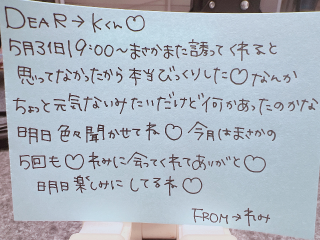 DEAR→Kくん♡
5月31日19:00〜まさかまた誘ってくれると
思ってなかったから本当びっくりした♡なんか
ちょっと元気ないみたいだけど何かあったのかな
明日色々聞かせてネ♡今月はまさかの
5回も♡れみに会ってくれてありがと♡
明日楽しみにしてるネ♡
FROM→れみ